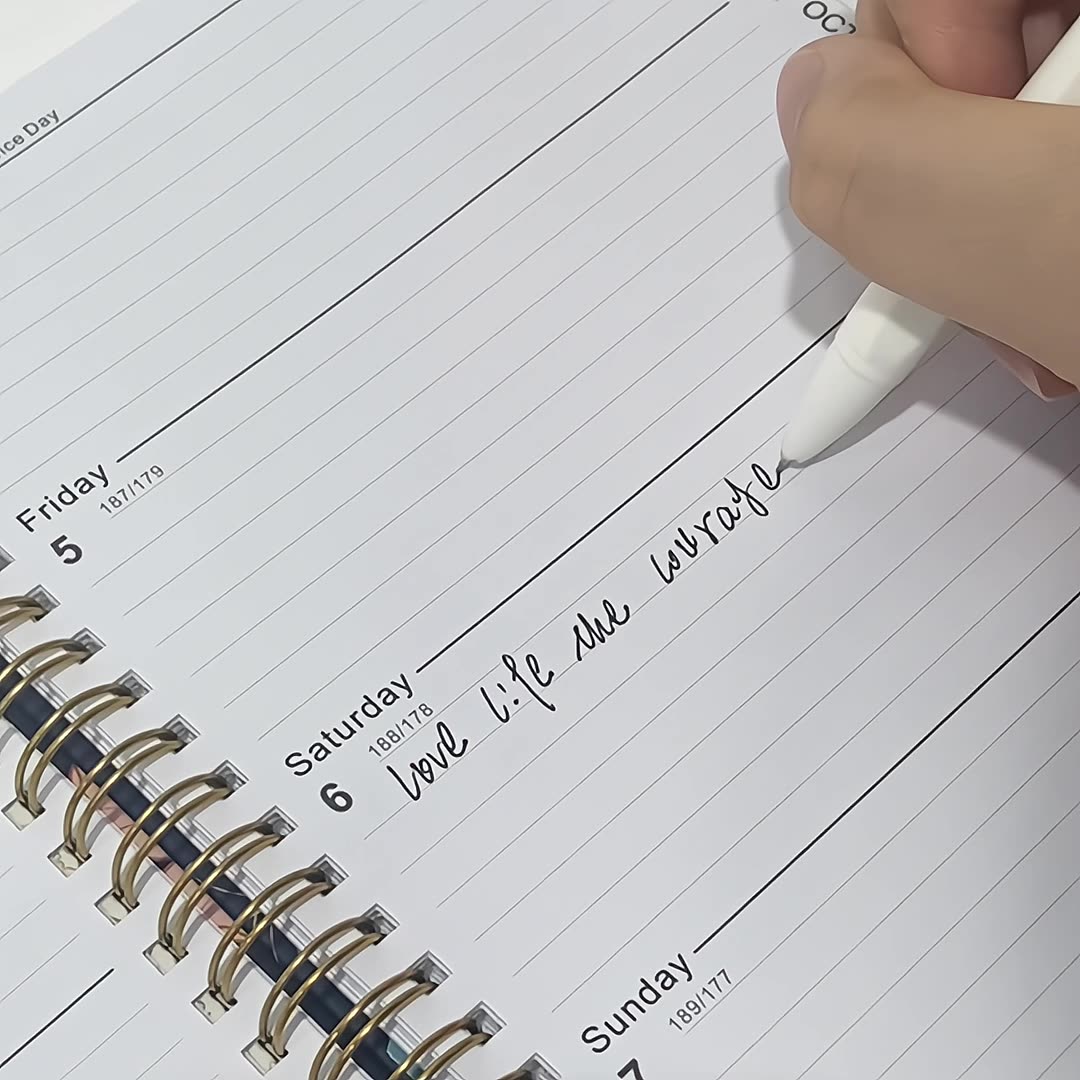 OC
ice Day
Friday
187/179
5
Saturday
188/178
6
Love life the courage
Sunday
189/177
7